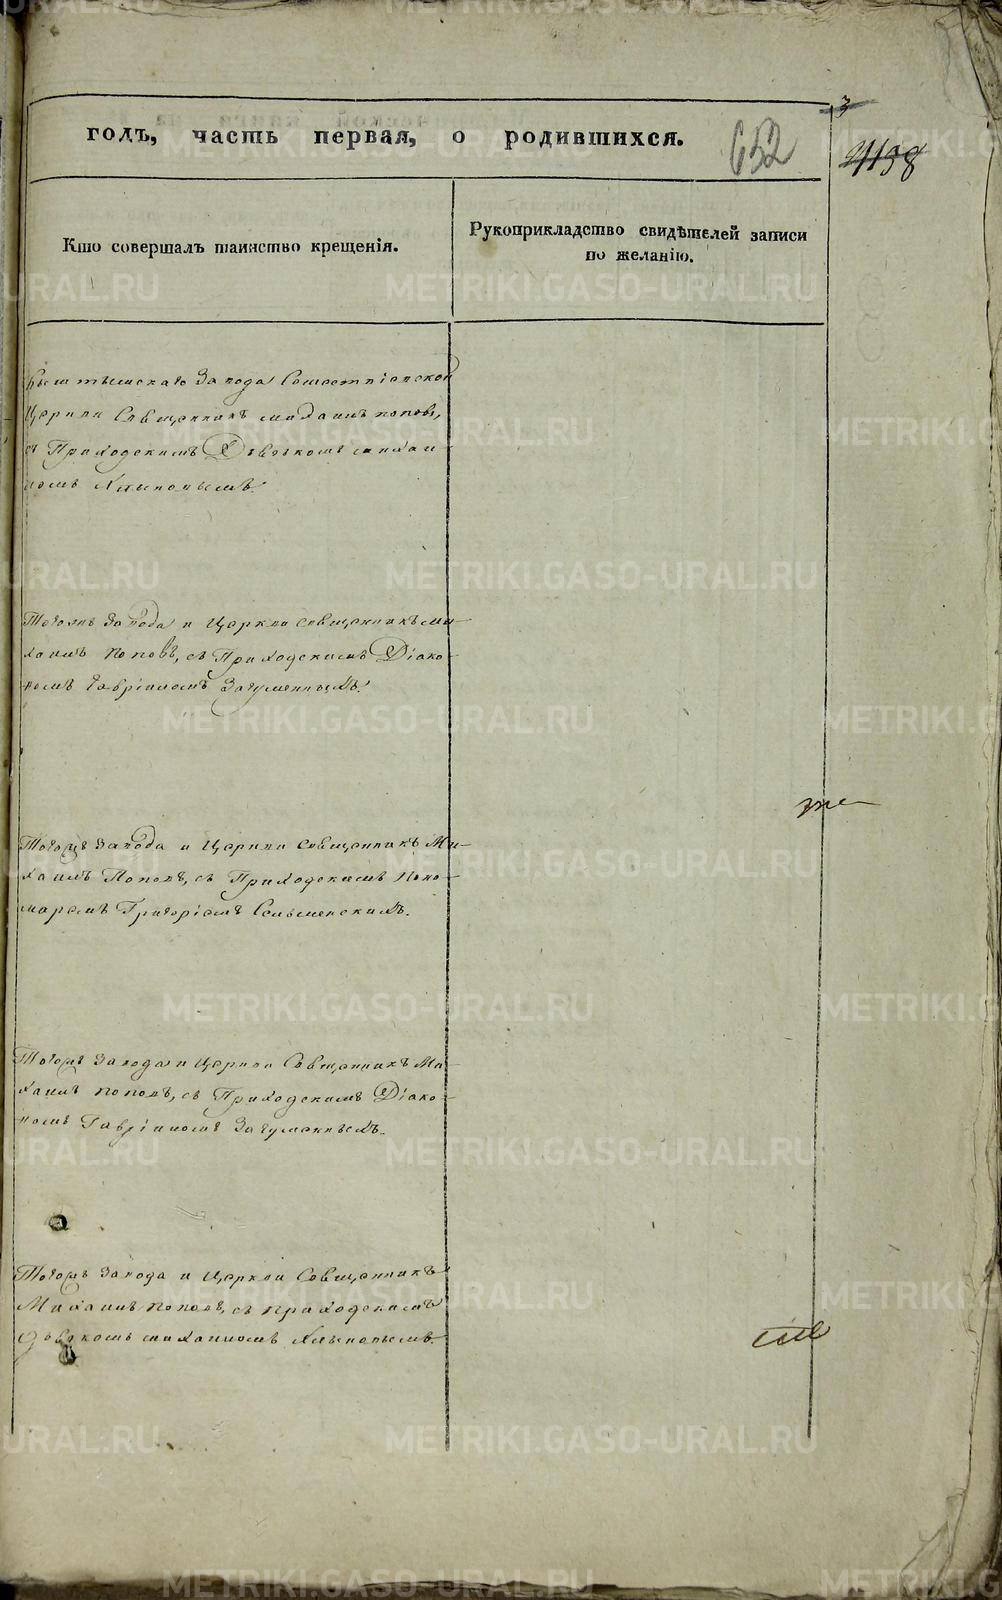 годъ, часть первая, о родившихся.
652
3
4138
Кто совершалъ таинство крещенія.
Рукоприкладство свидѣтелей записи
по желанію.
Кыштымскаго Завода Сошествіевской
Церкви Священникъ Михаилъ Поповъ,
съ Приходскимъ Дьячкомъ Михаи-
ломъ Хлыновымъ.
Тогожъ Завода и Церкви Священникъ Ми-
хаилъ Поповъ, съ Приходскимъ Діако-
номъ Гавріиломъ Загуменныхъ.
Тогожъ Завода и Церкви Священникъ Ми-
хаилъ Поповъ, съ Приходскимъ Поно-
маремъ Григоріемъ Сельменскихъ.
Тогожъ Завода и Церкви Священникъ Ми-
хаилъ Поповъ, съ Приходскимъ Діако-
номъ Гавріиломъ Загуменныхъ.
Тогожъ Завода и Церкви Священникъ
Михаилъ Поповъ, съ Приходскимъ
Дьячкомъ Михаиломъ Хлыновымъ.
METRIKI.GASO-URAL.RU